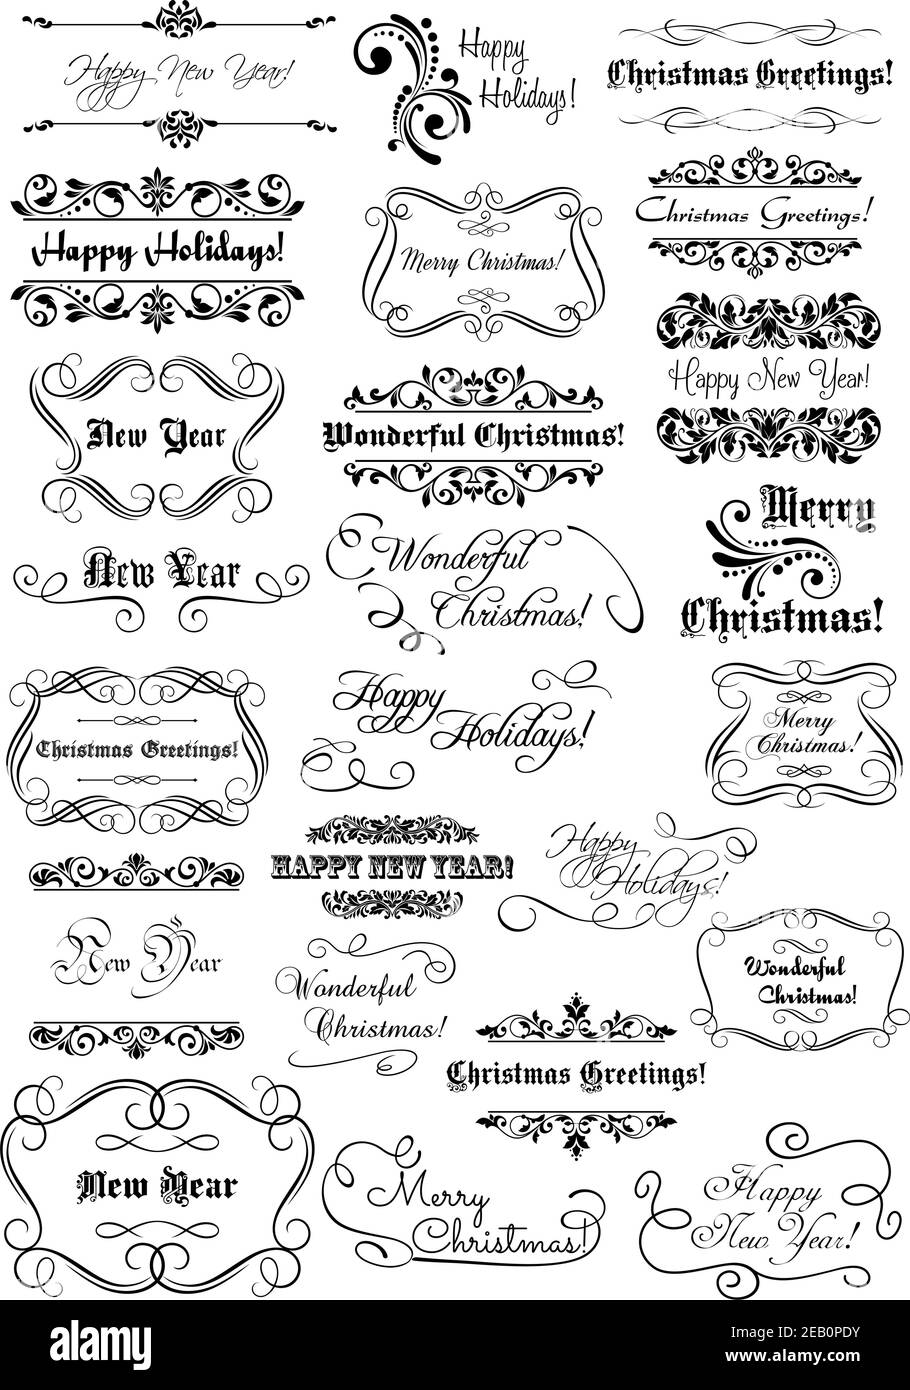 Happy New Year!
Happy
Holidays!
Christmas Greetings!
Happy Holidays!
Merry Christmas!
Christmas Greetings!
Happy New Year!
New Year
Wonderful Christmas!
Merry
Christmas!
New Year
Wonderful
Christmas!
Christmas Greetings!
Happy
Holidays!
Merry
Christmas!
HAPPY NEW YEAR!
Happy
Holidays!
New Year
Wonderful
Christmas!
Wonderful
Christmas!
Christmas Greetings!
New Year
Merry
Christmas!
Happy
New Year!
alamy
Image ID: 2EB0PDY
www.alamy.com